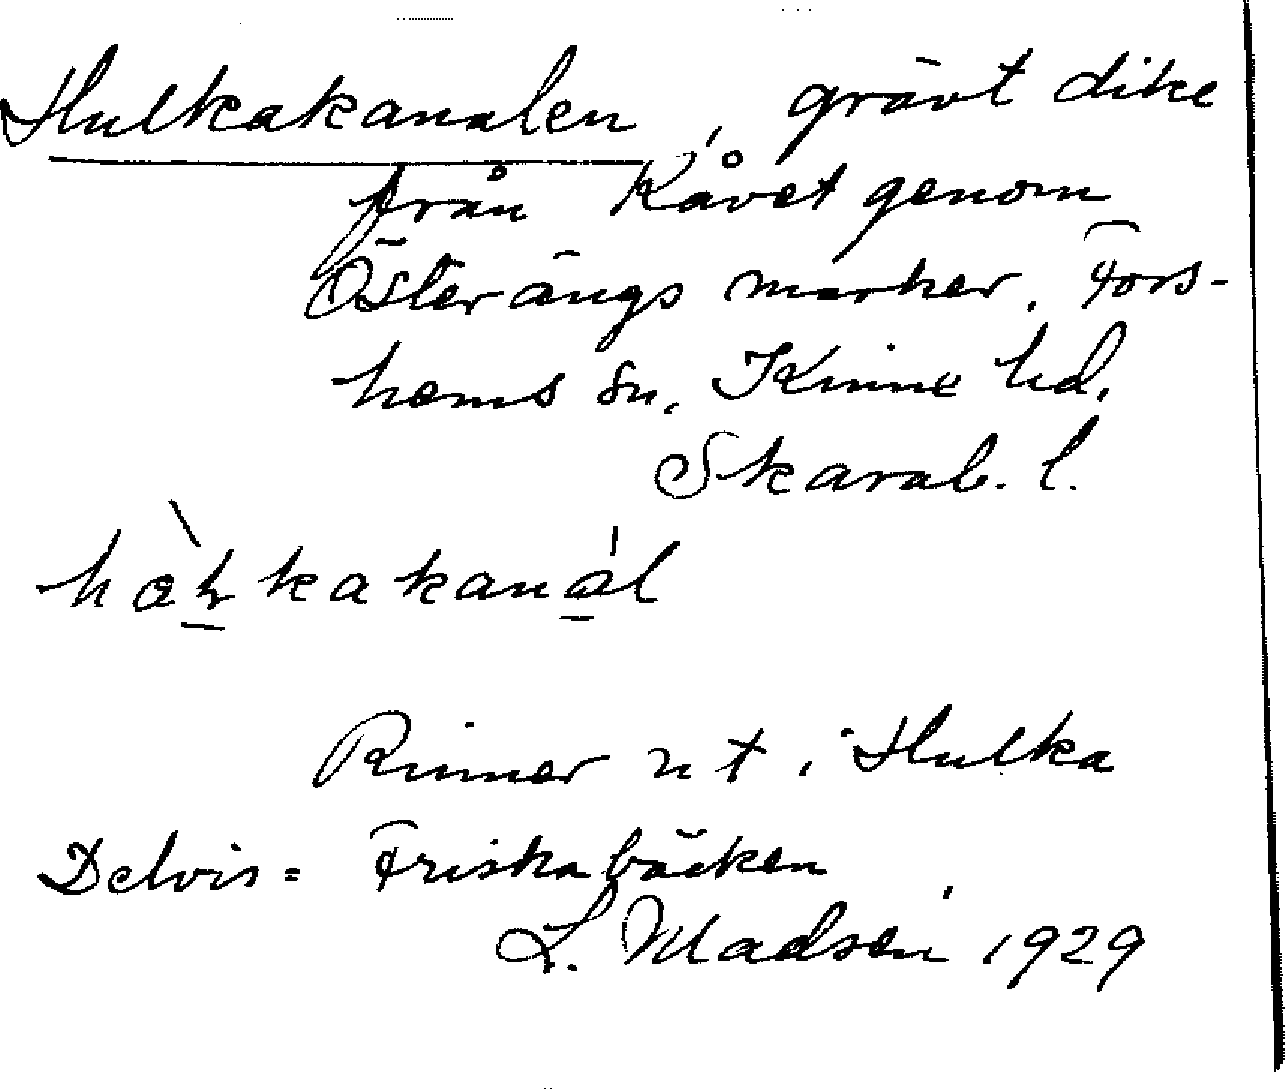 Hulkakanalen, grävt dike
från Kåvet genom
Österängs marker. Fors-
hems sn, Kinne hd.
Skarab. l.
Rinner ut i Hulka
Delvis = Friskabäcken
L. Madsén, 1929